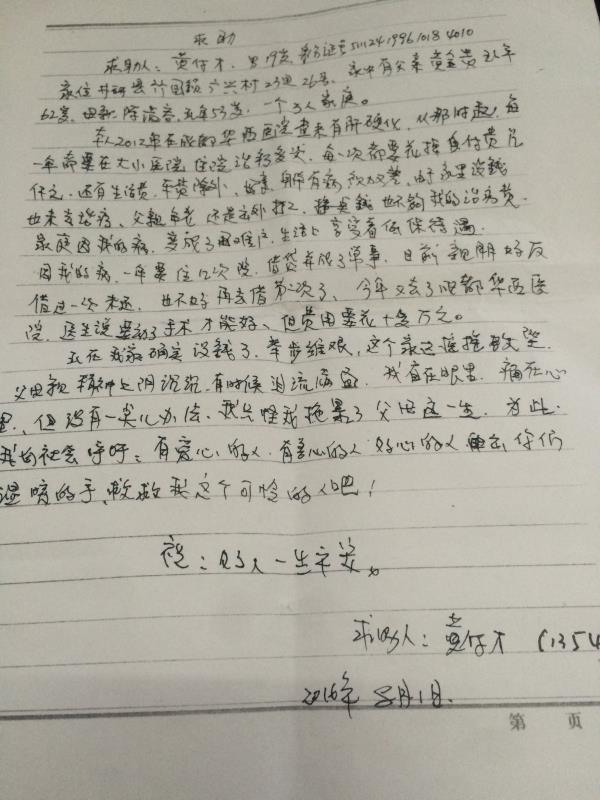 求助
求助人：黄仔才，男19岁，身份证号511124199610184010
家住井研县竹园镇广兴村23组26号，家中有父亲黄金贵现年
62岁，母亲陈清容，五年53岁，一个3人家庭。
本人2012年在成都华西医院查来有肝硬化，从那时起，每
一年都要在大小医院住院治疗多次，每一次都要花掉自付费几
仟元，还有生活费，车费除外，母亲身有病，由于家里没钱
也未去治病，父亲年老还是在外打工，挣点钱也不够我的治疗费，
家庭因我的病，变成了困难户，生活上享受着低保待遇。
因我的病，一年要住几次院，借贷弃成了常事，目前亲朋好友
借过一次未还，也不好再去借第二次了，今年又去了成都华西医
院，医生说要动了手术才能好，但费用要花十多万元。
现在我家确实没钱了，举步维艰，这个家
父母亲精神上阴沉沉，有时候泪流满面，我看在眼里，痛在心
里，但没有一点儿办法，我只怪我拖累了父母这一生，为此
我向社会呼吁：有爱心的人，有善心的人，好心的人伸出你们
温暖的手，救救我这个可怜的人吧！
祝：好人一生平安。
求助人：黄仔才（1354
2016年8月1日.
第 页